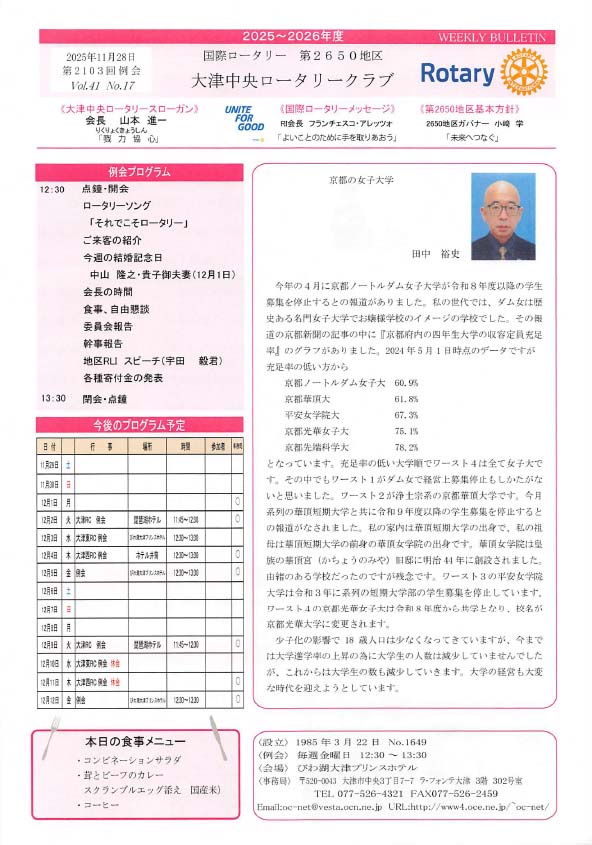 2025～2026年度
WEEKLY BULLETIN
2025年11月28日
第２１０３回例会
Vol.41 No.17
国際ロータリー 第２６５０地区
大津中央ロータリークラブ
Rotary
《大津中央ロータリースローガン》
会長 山本 進一
りくりょくきょうしん
「戮 力 協 心」
UNITE
FOR
GOOD
《国際ロータリーメッセージ》
RI会長 フランチェスコ・アレッツォ
「よいことのために手を取りあおう」
《第2650地区基本方針》
2650地区ガバナー 小﨑 学
「未来へつなぐ」
例会プログラム
12:30 点鐘・開会
ロータリーソング
「それでこそロータリー」
ご来客の紹介
今週の結婚記念日
中山 隆之・貴子御夫妻（12月1日）
会長の時間
食事、自由懇談
委員会報告
幹事報告
地区RLI スピーチ（宇田 毅君）
各種寄付金の発表
13:30 閉会・点鐘
今後のプログラム予定
日 付 行 事 場所 時間 参加者 事務局
11月29日 土
11月30日 日
12月1日 月 〇
12月2日 火 大津RC 例会 琵琶湖ホテル 11:45～12:30 〇
12月3日 水 大津東RC 例会 びわ湖大津プリンスホテル 12:30～13:30 〇
12月4日 木 大津西RC 例会 ホテル井筒 12:30～13:30 〇
12月5日 金 例会 びわ湖大津プリンスホテル 12:30～13:30 〇
12月6日 土
12月7日 日
12月8日 月
12月9日 火 大津RC 例会 琵琶湖ホテル 11:45～12:30 〇
12月10日 水 大津東RC 例会 休会
12月11日 木 大津西RC 例会 休会 〇
12月12日 金 例会 びわ湖大津プリンスホテル 12:30～13:30 〇
本日の食事メニュー
・コンビネーションサラダ
・茸とビーフのカレー
スクランブルエッグ添え 国産米）
・コーヒー
京都の女子大学
田中 裕史
今年の４月に京都ノートルダム女子大学が令和８年度以降の学生
募集を停止するとの報道がありました。私の世代では、ダム女は歴
史ある名門女子大学でお嬢様学校のイメージの学校でした。その報
道の京都新聞の記事の中に『京都府内の四年生大学の収容定員充足
率』のグラフがありました。2024 年５月１日時点のデータですが
充足率の低い方から
京都ノートルダム女子大 60.9%
京都華頂大 61.8%
平安女学院大 67.3%
京都光華女子大 75.1%
京都先端科学大 78.2%
となっています。充足率の低い大学順でワースト４は全て女子大で
す。その中でもワースト１がダム女で経営上募集停止もしかたがな
いと思いました。ワースト２が浄土宗系の京都華頂大学です。今月
系列の華頂短期大学と共に令和９年度以降の学生募集を停止すると
の報道がなされました。私の家内は華頂短期大学の出身で、私の祖
母は華頂短期大学の前身の華頂女学院の出身です。華頂女学院は皇
族の華頂宮（かちょうのみや）旧邸に明治 44 年に創設されました。
由緒のある学校だったのですが残念です。ワースト３の平安女学院
大学は令和３年に系列の短期大学部の学生募集を停止しています。
ワースト４の京都光華女子大は令和８年度から共学となり、校名が
京都光華大学に変更されます。
少子化の影響で 18 歳人口は少なくなってきていますが、今まで
は大学進学率の上昇の為に大学生の人数は減少していませんでした
が、これからは大学生の数も減少していきます。大学の経営も大変
な時代を迎えようとしています。
〈設立〉 1985 年 3 月 22 日 No.1649
〈例会〉 毎週金曜日 12:30 ～ 13:30
〈会場〉 びわ湖大津プリンスホテル
〈事務局〉 〒520-0043 大津市中央3丁目7-7 ラ・フォンテ大津 3階 302号室
TEL 077-526-4321 FAX077-526-2459
Email:oc-net@vesta.ocn.ne.jp URL:http://www4.oce.ne.jp/~oc-net/